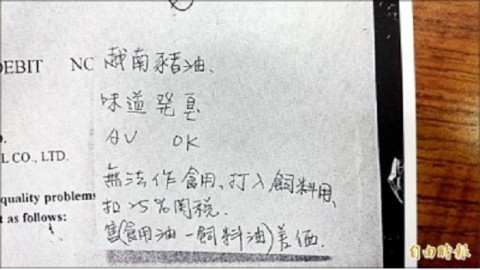 DEBIT NO
越南豬油、
味道 発臭
AV OK
L CO., LTD.
無法作食用、打入飼料用、
quality problems
扣25%関税.
t as follows:
(食用油-飼料油)差価.
自由時報